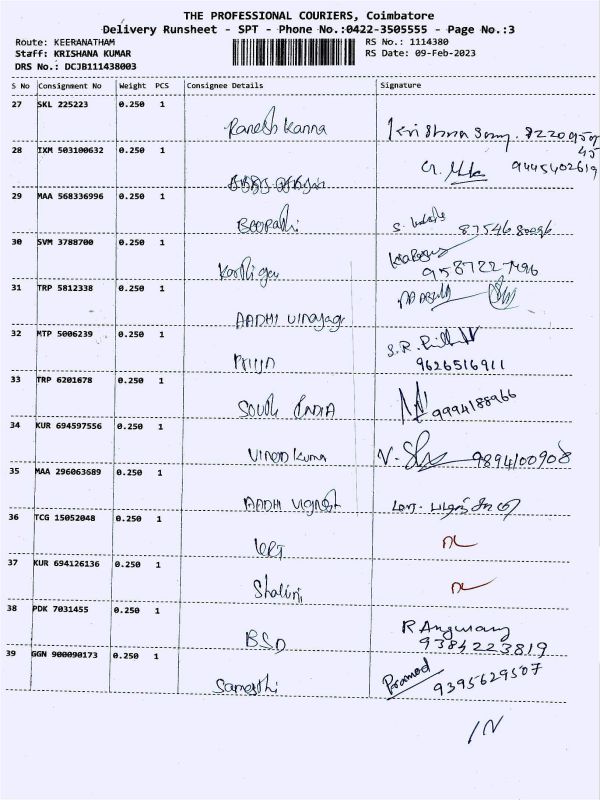 THE PROFESSIONAL COURIERS, Coimbatore
Delivery Runsheet - SPT - Phone No.:0422-3505555 - Page No.:3
Route: KEERANATHAM RS No.: 1114380
Staff: KRISHANA KUMAR RS Date: 09-Feb-2023
DRS No.: DCJB111438003
S No Consignment No Weight PCS Consignee Details Signature
27 SKL 225223 0.250 1
Ranesh Kanna Krishna
28 IXM 503100632 0.250 1
9445402619
29 MAA 568336996 0.250 1
Boopathi S. 8754680096
30 SVM 3788700 0.250 1
Karthigeu 9587227496
31 TRP 5812338 0.250 1
AADHI Vinayaga
32 MTP 5006239 0.250 1
Priya S.R. 9626516911
33 TRP 6201678 0.250 1
South INDIA 9994188966
34 KUR 694597556 0.250 1
Vinod Kumar V. 9894100908
35 MAA 296063689 0.250 1
AADHI Vignesh
36 TCG 15052048 0.250 1
NL
37 KUR 694126136 0.250 1
Shalini NL
38 PDK 7031455 0.250 1
BSD R Angurany 9384223819
39 GGN 900090173 0.250 1
Pramod 9395629507
IN